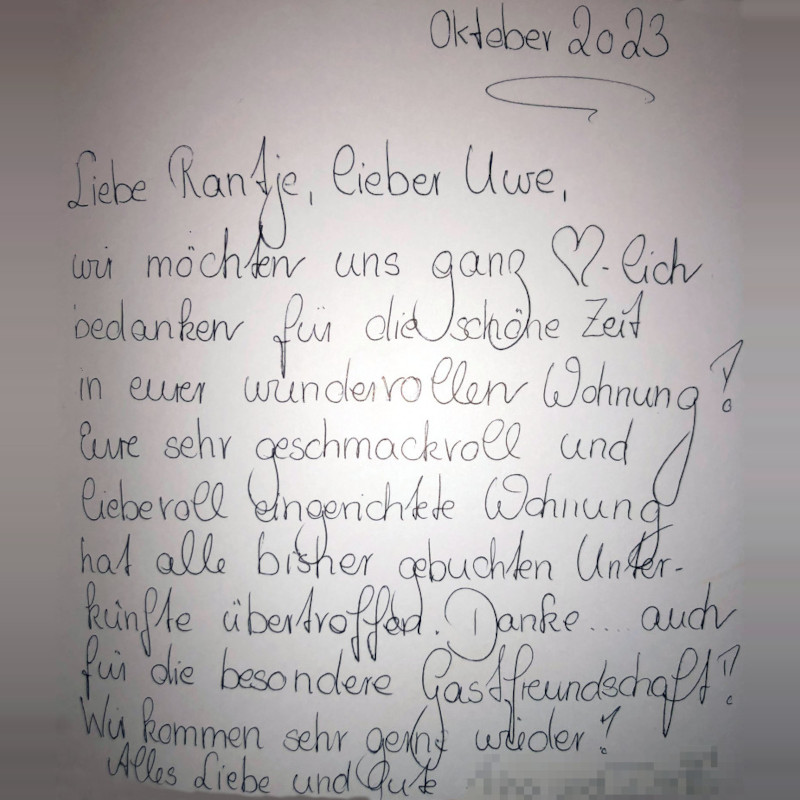 Oktober 2023
Liebe Rantje, lieber Uwe,
wir möchten uns ganz ♡-lich
bedanken für die schöne Zeit
in eurer wundervollen Wohnung!
Eure sehr geschmackvoll und
liebevoll eingerichtete Wohnung
hat alle bisher gebuchten Unter-
künfte übertroffen. Danke.... auch
für die besondere Gastfreundschaft!!
Wir kommen sehr gerne wieder!
Alles Liebe und Gute